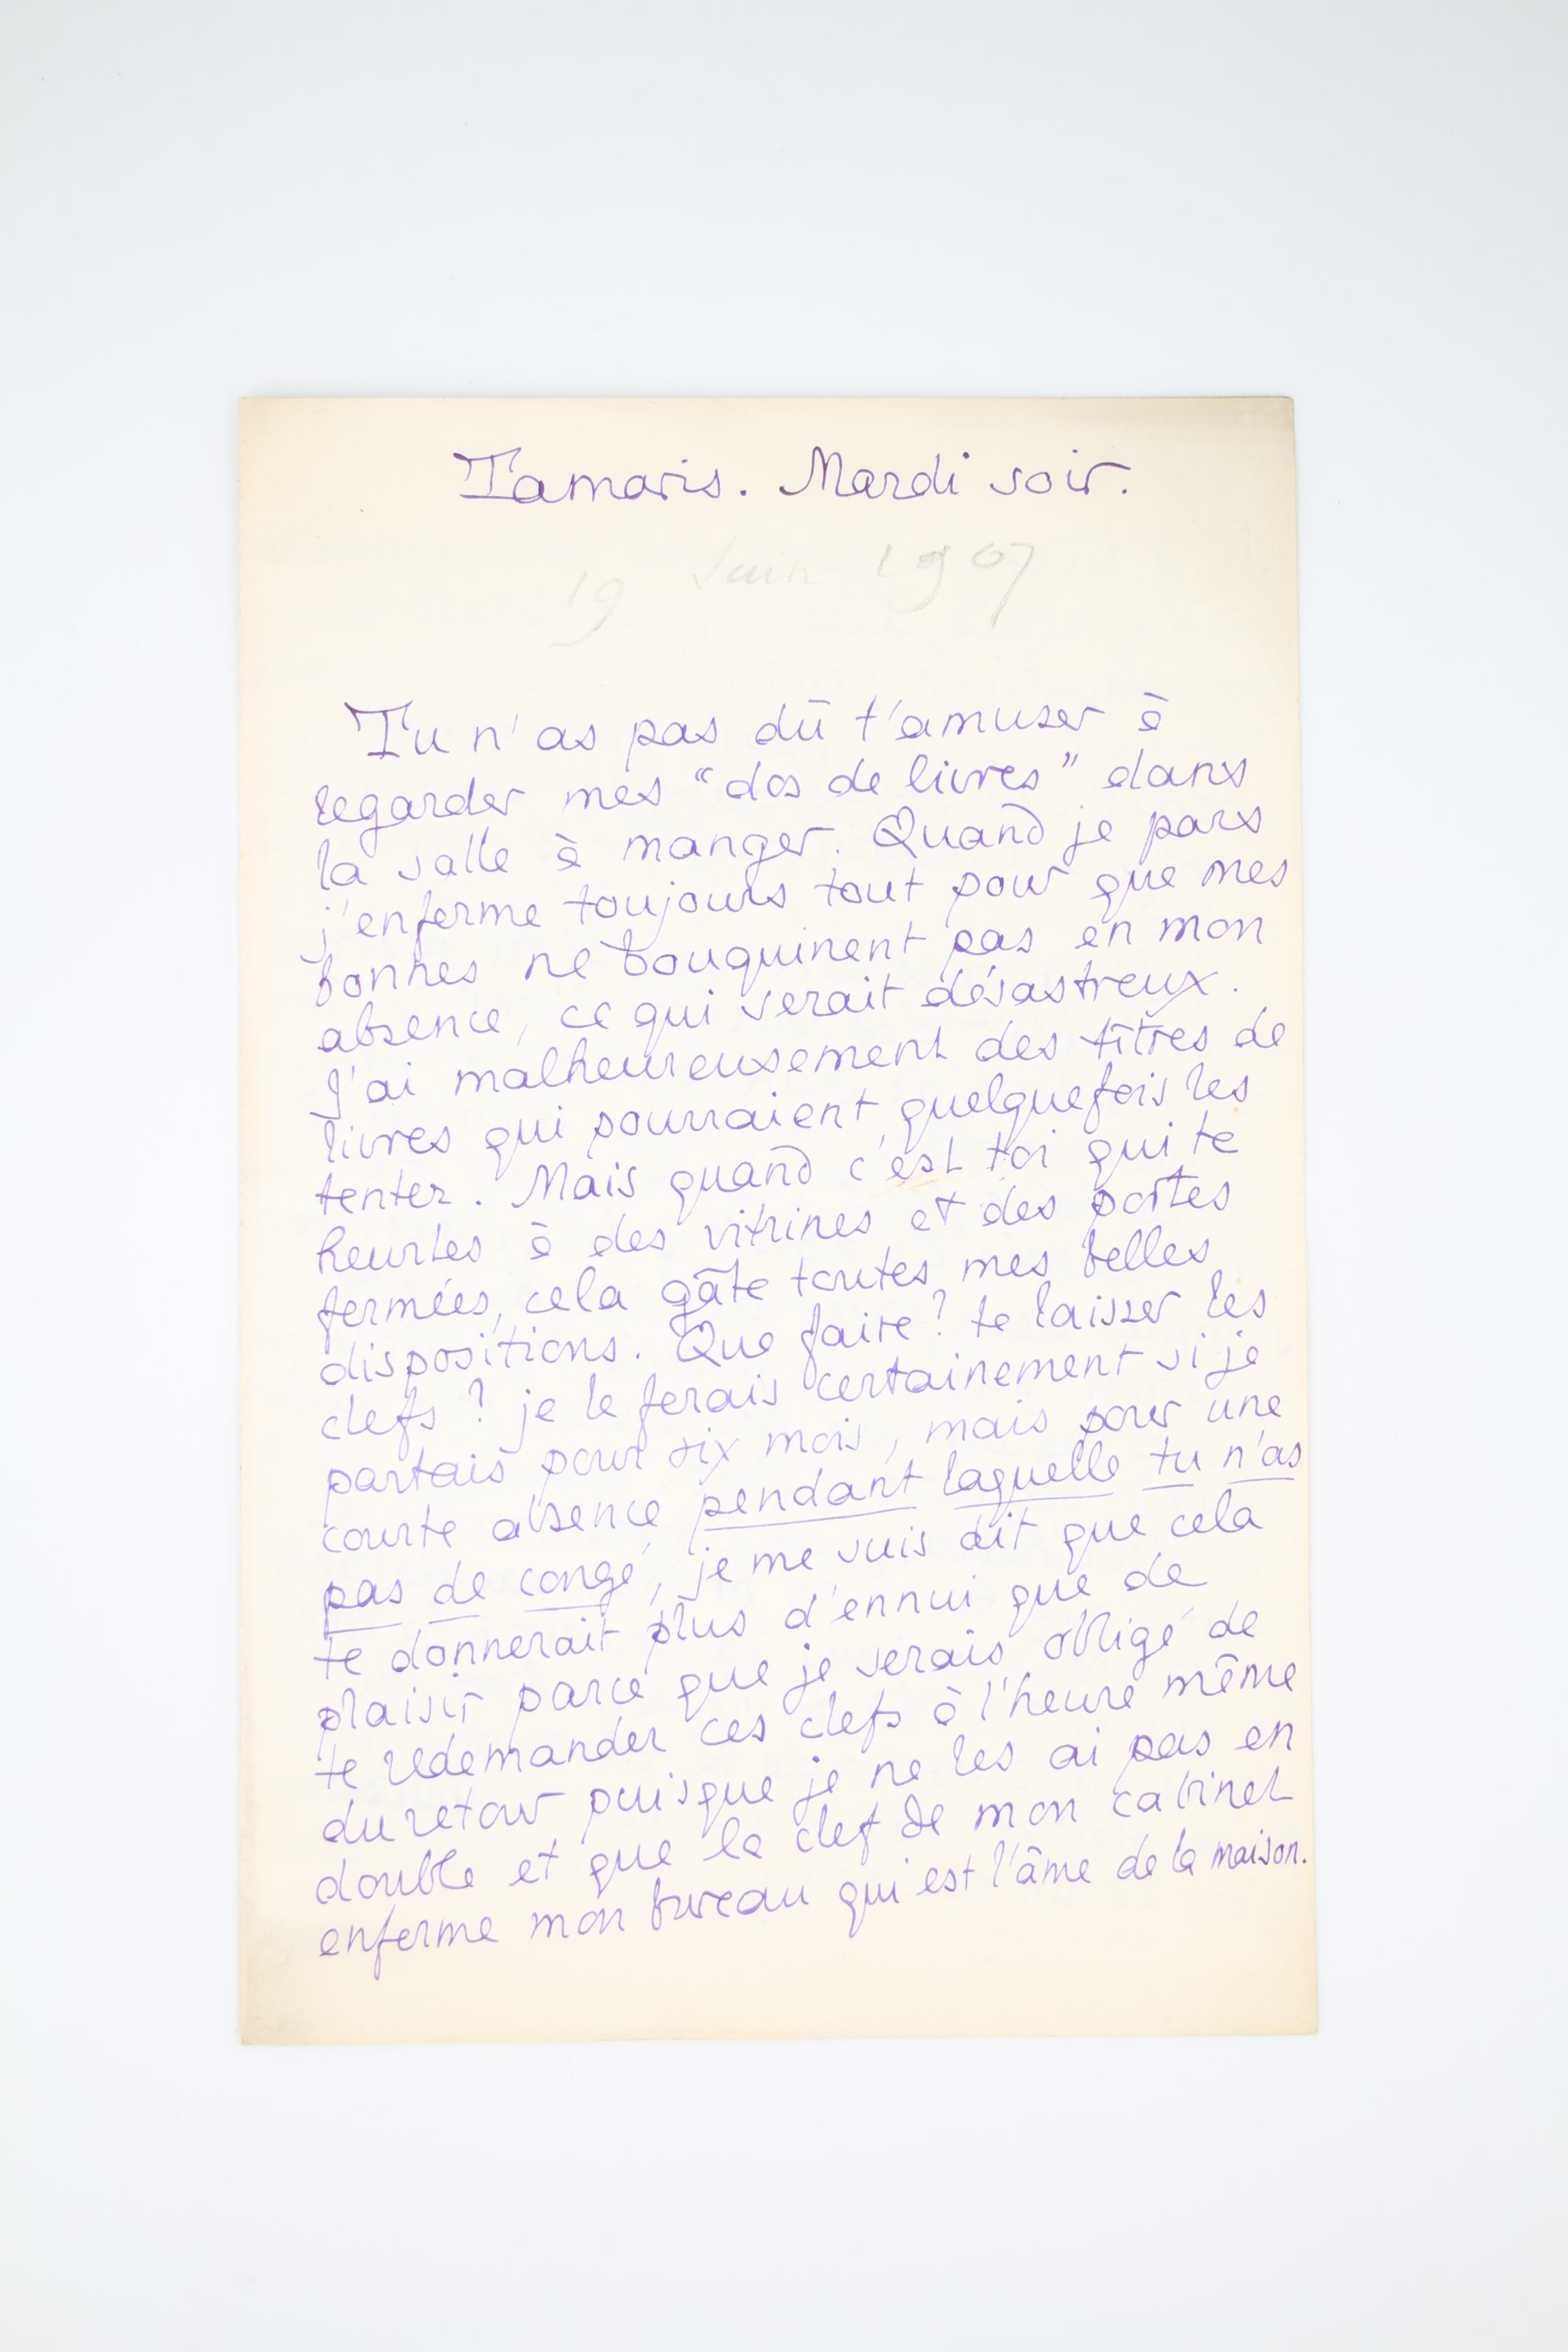 Tamaris. Mardi soir.
19 Juin 1907
Tu n'as pas dû t'amuser à
regarder mes “dos de livres” dans
la salle à manger. Quand je pars
j'enferme toujours tout pour que mes
bonnes ne bouquinent pas en mon
absence, ce qui serait désastreux.
J'ai malheureusement des titres de
livres qui pourraient quelquefois les
tenter. Mais quand c'est toi qui te
heurtes à des vitrines et des portes
fermées, cela gâte toutes mes belles
dispositions. Que faire ? te laisser les
clefs ? je le ferais certainement si je
partais pour six mois, mais pour une
courte absence pendant laquelle tu n'as
pas de congé, je me suis dit que cela
te donnerait plus d'ennui que de
plaisir parce que je serais obligé de
te redemander ces clefs à l'heure même
du retour puisque je ne les ai pas en
double et que la clef de mon cabinet
enferme mon bureau qui est l'âme de la maison.